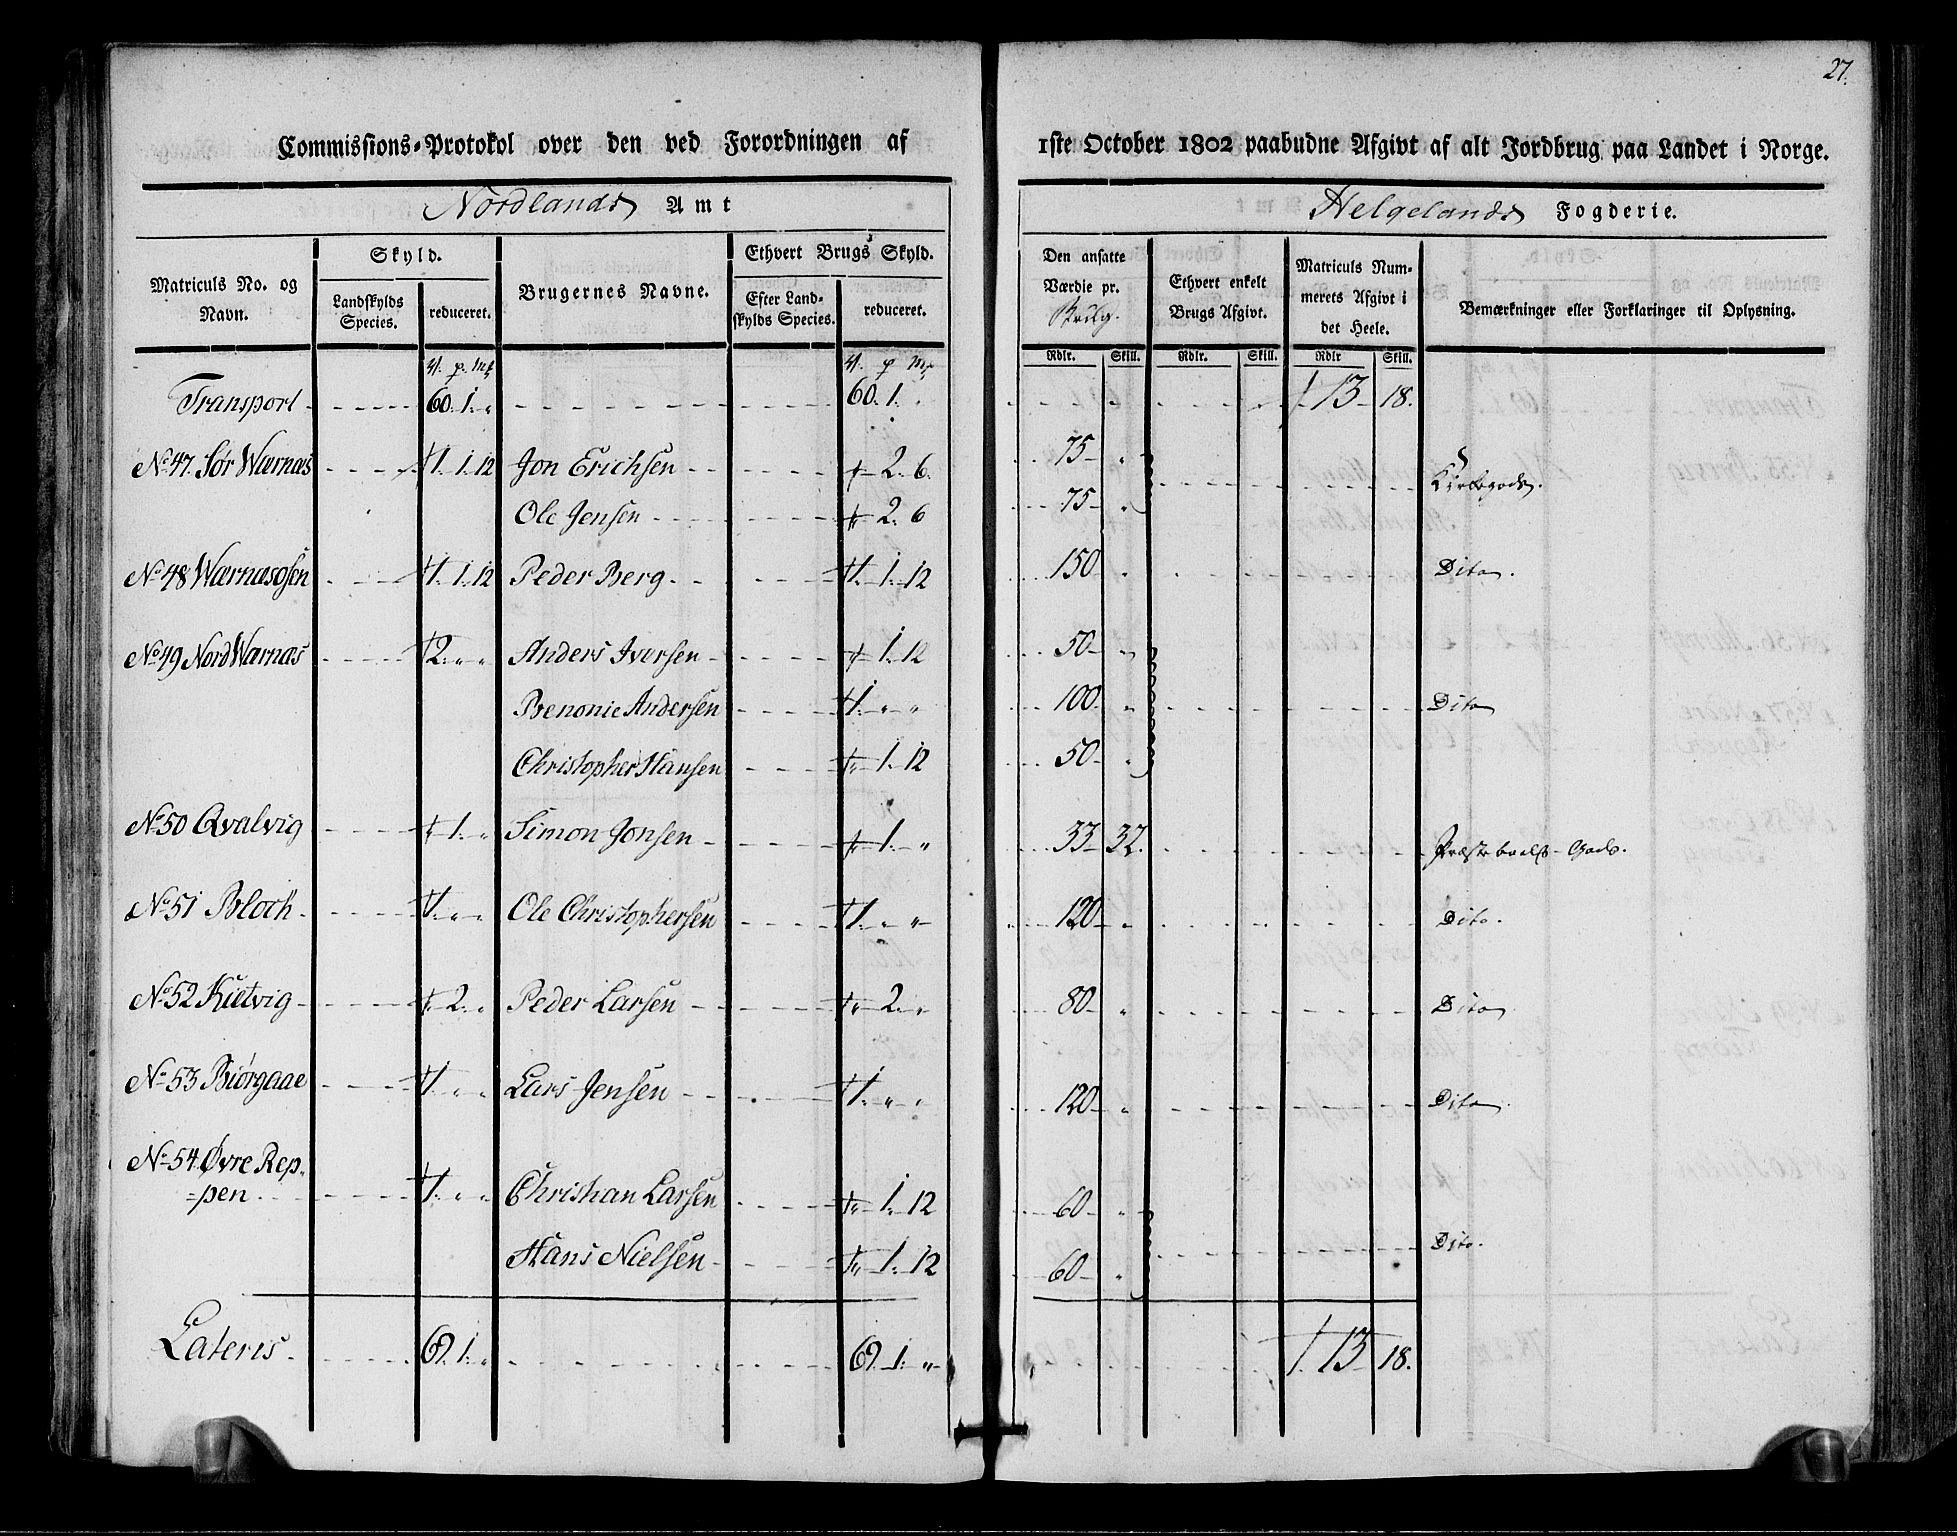 27.
Commissions-Protokol over den ved Forordningen af 1ste October 1802 paabudne Afgivt af alt Jordbrug paa Landet i Norge.
Nordlands Amt Helgelands Fogderie.
Matriculs No. og Navn. Skyld. Landskylds Species. reduceret. Brugernes Navne. Ethvert Brugs Skyld. Efter Landskylds Species. reduceret. Den ansatte Værdie pr. Ethvert enkelt Brugs Afgivt. Matriculs Nummerets Afgivt i det Heele. Bemærkninger eller Forklaringer til Oplysning.
Rdlr. Skill. Rdlr. Skill. Rdlr Skill.
Transport 60. 1. " 60. 1. " 113 18.
No 47. Sør Wærnæs 1. 1. 12 Jon Erichsen " 2. 6. 75 " Kirkegods.
Ole Jensen " 2. 6 75 "
No 48 Wærnæsosen 1. 1. 12 Peder Berg 1. 1. 12 150 " Dito.
No 49 Nord Wærnæs 2. " " Anders Iversen " 1. 12 50 "
Benonie Andersen 1. " " 100 " Dito
Christopher Hansen " 1. 12 50 "
No 50 Qvalvig " 1. " Simon Jonsen " 1. " 33 32. Præstebols-Gods.
No 51 Bloch 1. " " Ole Christophersen 1. " " 120 " Dito.
No 52 Kietvig " 2. " Peder Larsen " 2. " 80 " Dito
No 53 Biørgaae 1. " " Lars Jensen 1. " " 120 " Dito
No 54 Øvre Rep-
=pen 1. " " Christian Larsen " 1. 12 60 "
Hans Nielsen " 1. 12 60 " Dito.
Lateris 69. 1. " 69. 1. " 113 18.